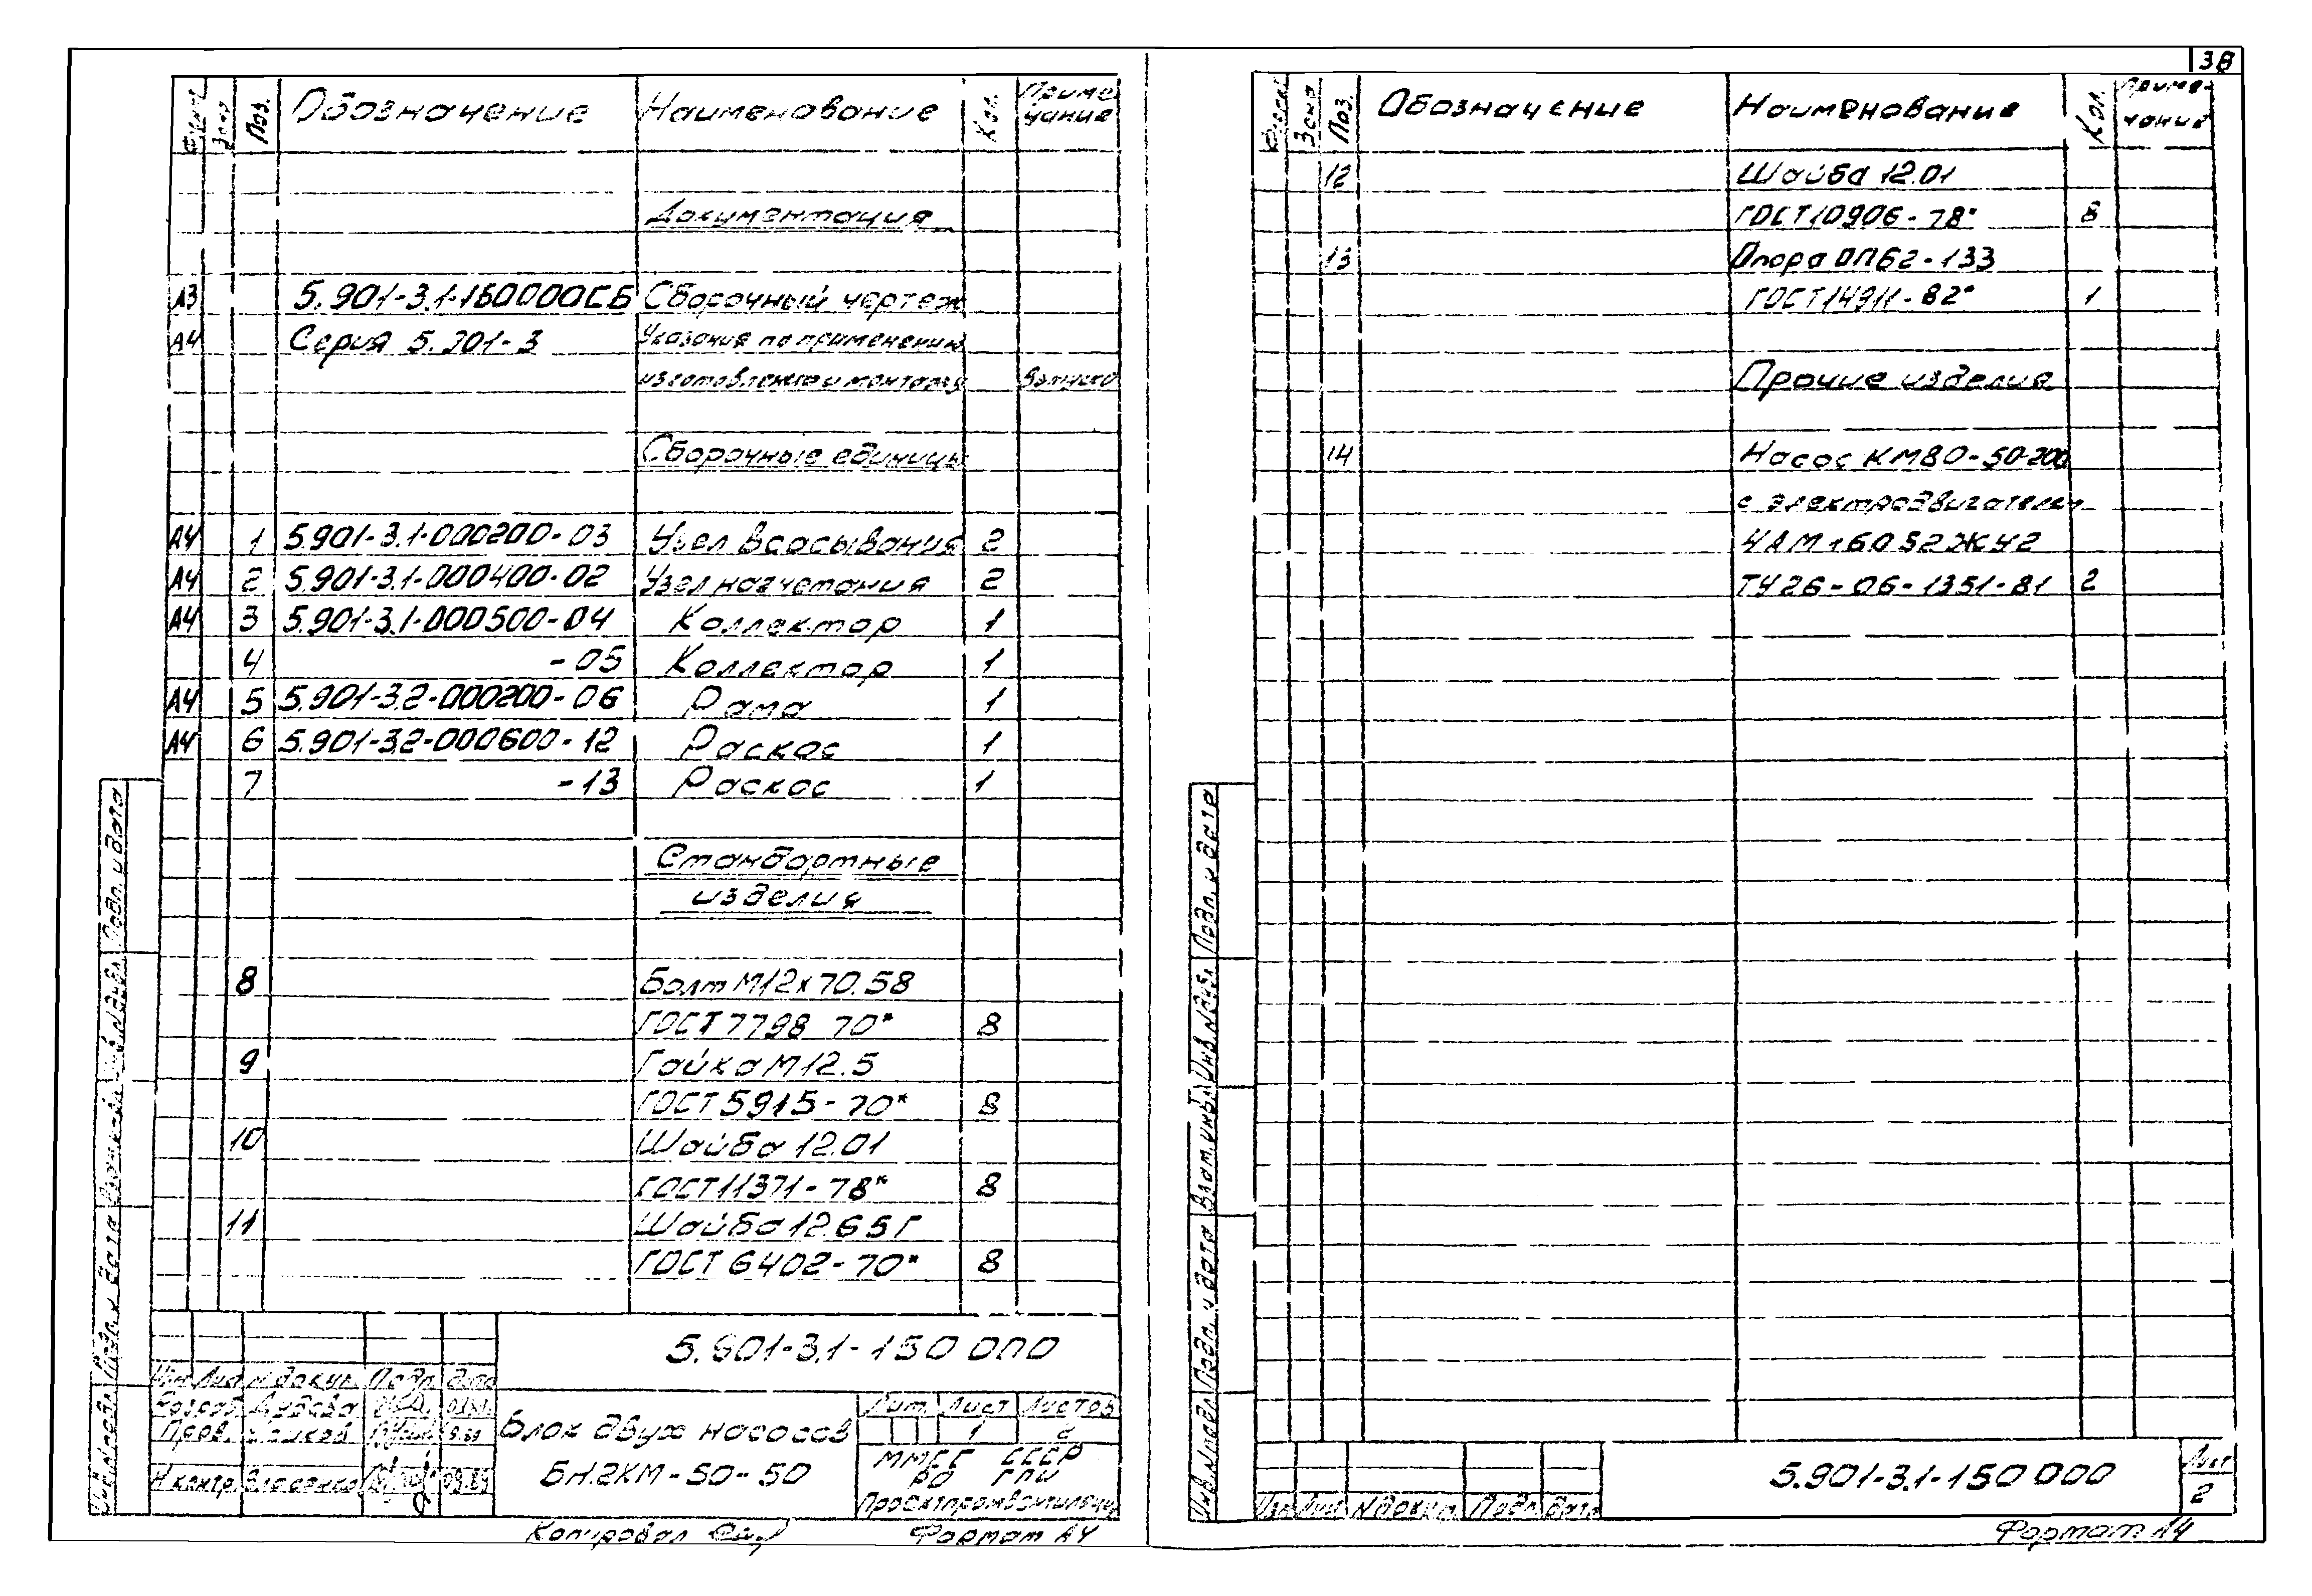 38
Формат Зона Поз. Обозначение Наименование Кол. Приме-
чание
Документация
А3 5.901-3.1-150000СБ Сборочный чертеж
А4 Серия 5.901-3 Указания по применению,
изготовлению и монтажу
Сборочные единицы
А4 1 5.901-3.1-000200-03 Узел всасывания 2
А4 2 5.901-3.1-000400-02 Узел нагнетания 2
А4 3 5.901-3.1-000500-04 Коллектор 1
4 -05 Коллектор 1
А4 5 5.901-3.2-000200-06 Рама 1
А4 6 5.901-3.2-000600-12 Раскос 1
7 -13 Раскос 1
Стандартные
изделия
8 Болт М12х70.58
ГОСТ 7798-70* 8
9 Гайка М12.5
ГОСТ 5915-70* 8
10 Шайба 12.01
ГОСТ 11371-78* 8
11 Шайба 12.65Г
ГОСТ 6402-70* 8
Подп. и дата
Инв. № дубл.
Подп. и дата
Инв. № подл.
5.901-3.1-150 000
Изм Лис № докум. Подп. Дата
Разраб.
Пров.
Н.контр. Власенко 09.89
Блок двух насосов
БН.2КМ-50-50
Лит. Лист Листов
1 2
ММСС СССР
ПО ГПИ
Проектпромвентиляция
Копировал
Формат А4
Формат Зона Поз. Обозначение Наименование Кол. Приме-
чание
12 Шайба 12.01
ГОСТ 10906-78* 8
13 Опора ОПБ2-133
ГОСТ 14911-82* 1
Прочие изделия
14 Насос КМ80-50-200
с электродвигателем
4АМ160S2ЖУ2
ТУ26-06-1351-81 2
Подп. и дата
Инв. № дубл.
Взам. инв. №
Подп. и дата
Инв. № подл.
Изм Лист № докум. Подп. Дата
5.901-3.1-150 000
Лист
2
Формат А4